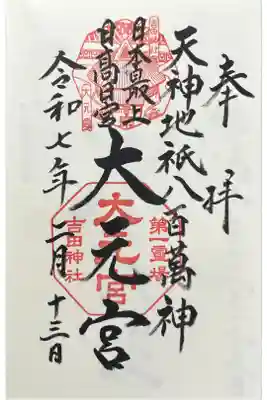 奉拝
天神地祇八百萬神
日本最上
日高日宮
大元宮
令和七年二月十三日
第一霊場
大元宮
吉田神社